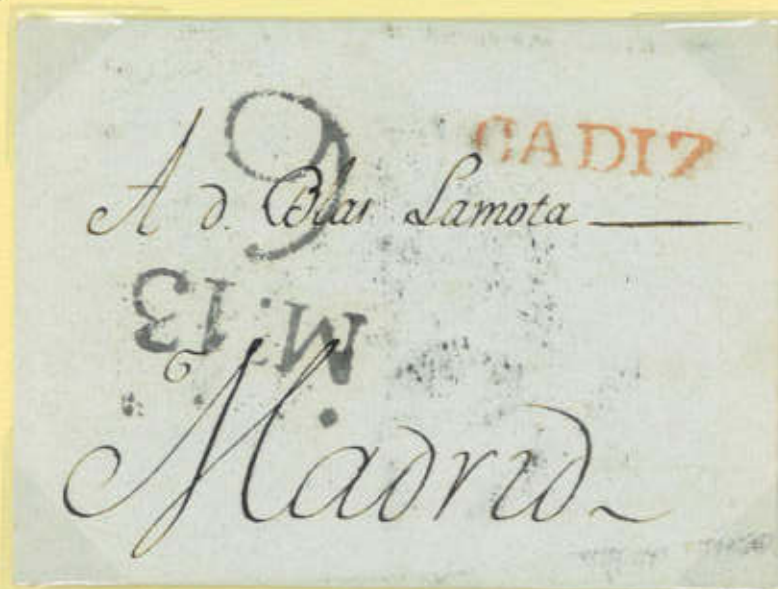 CADIZ
9
A d. Blas Lamota
M. 13
Madrid